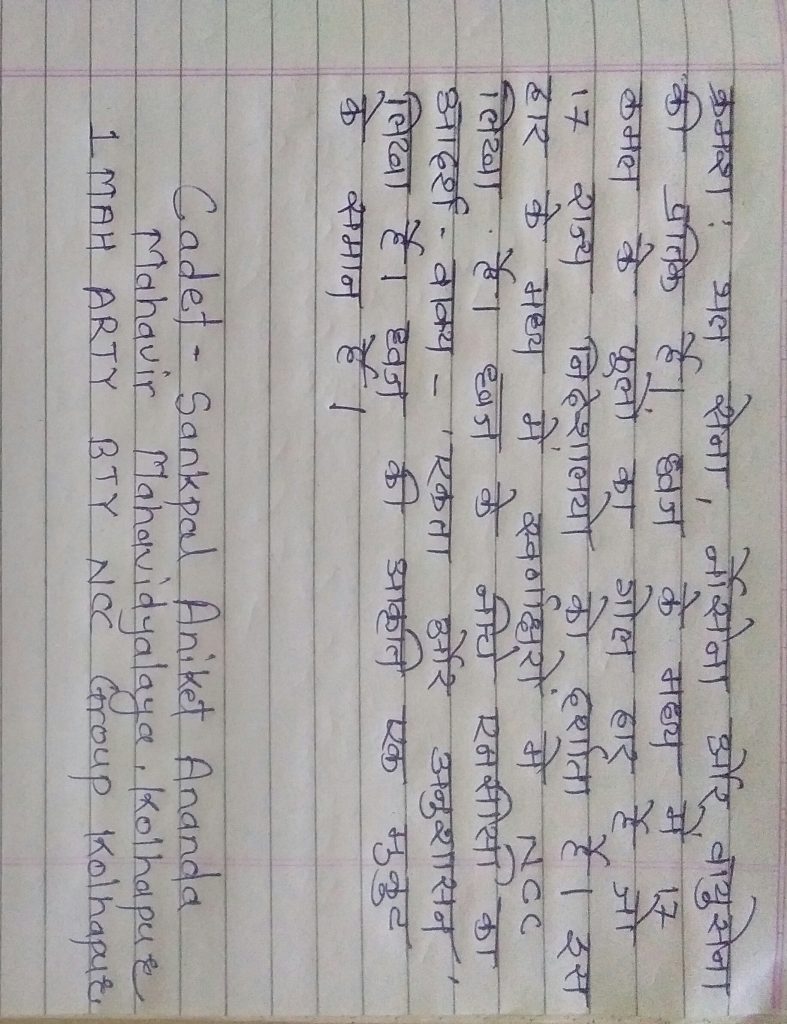 क्रमशः थल सेना, नौसेना और वायुसेना
की प्रतिक है। ध्वज के मध्य में 17
कमल के फुलों का गोल हार है जो
17 राज्य निदेशालयो को दर्शाता है। इस
हार के मध्य में स्वर्णाक्षरों मे NCC
लिखा है। ध्वज के नीचे एनसीसी का
आदर्श - वाक्य - 'एकता और अनुशासन'
लिखा है। ध्वज की आकृति एक मुकुट
के समान है।
Cadet - Sankpal Aniket Ananda
Mahavir Mahavidyalaya, Kolhapur
1 MAH ARTY BTY NCC Group Kolhapur